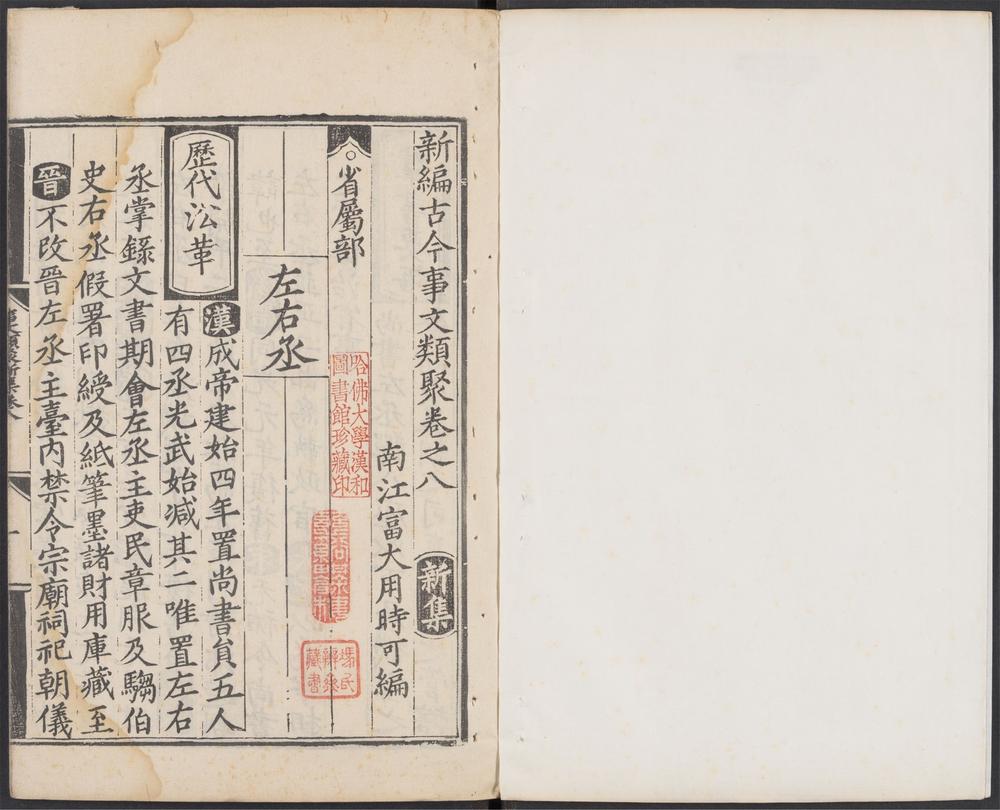 新編古今事文類聚卷之八 新集
南江富大用時可編
省屬部
左右丞
歷代沿革
漢成帝建始四年置尚書員五人
有四丞光武始減其二唯置左右
丞掌錄文書期會左丞主吏民章服及騶伯
史右丞假署印綬及紙筆墨諸財用庫藏至
晉不改晉左丞主臺內禁令宗廟祠祀朝儀
哈佛大學漢和
圖書館珍藏印